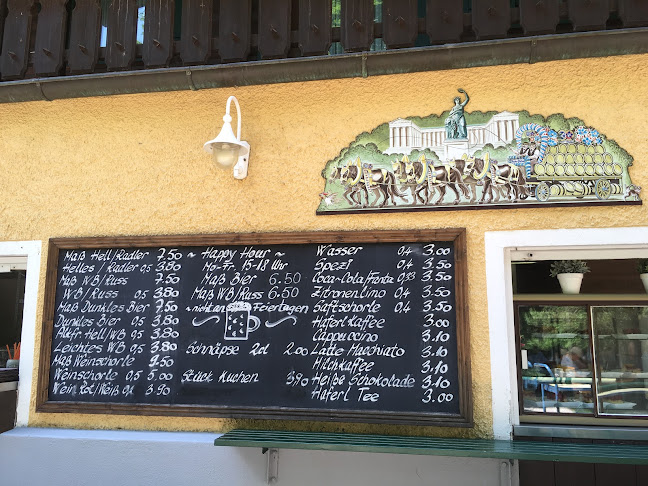 Maß Hell/Radler 7.50
Helles/Radler 0,5 3.80
Maß WB/Russ 7.50
WB/Russ 0.5 3.80
Maß Dunkles Bier 7.50
Dunkles Bier 0,5 3.80
Alkfr. Hell/WB 0,5 3.80
Leichtes WB 0,5 3.80
Maß Weinschorle 7.50
Weinschorle 0,5 5.00
Wein Rot/Weiß 0,2 3.50
~ Happy Hour ~
Mo-Fr. 15-18 Uhr
Maß Bier 6.50
Maß WB/Russ 6.50
~ nicht an Feiertagen
Schnäpse 2cl 2.00
Stück Kuchen 3,90
Wasser 0,4 3.00
Spezi 0,4 3.50
Coca-Cola/Fanta 0,33 3.50
Zitronenlimo 0,4 3.50
Saftschorle 0,4 3.50
Haferl Kaffee 3.00
Cappuccino 3.10
Latte Macchiato 3.10
Milchkaffee 3.10
Heiße Schokolade 3.10
Haferl Tee 3.00